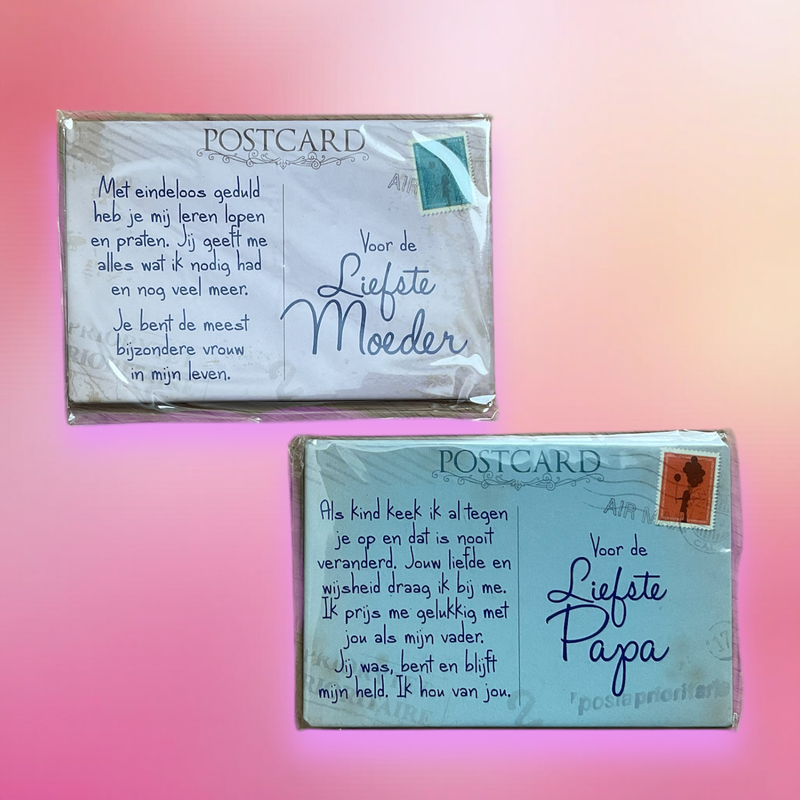 POSTCARD
AIR
Met eindeloos geduld
heb je mij leren lopen
en praten. Jij geeft me
alles wat ik nodig had
en nog veel meer.
Je bent de meest
bijzondere vrouw
in mijn leven.
Voor de
Liefste
Moeder
POSTCARD
AIR M
Als kind keek ik al tegen
je op en dat is nooit
veranderd. Jouw liefde en
wijsheid draag ik bij me.
Ik prijs me gelukkig met
jou als mijn vader.
Jij was, bent en blijft
mijn held. Ik hou van jou.
Voor de
Liefste
Papa
17
posta prioritaria